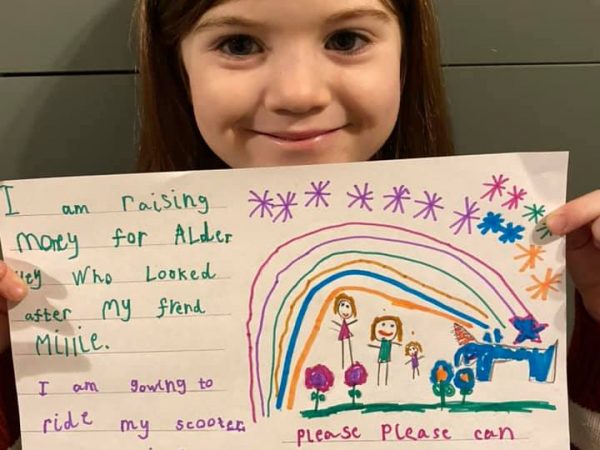 I am raising
money for ALder
Hey Who Looked
after my frend
Millie.
I am gowing to
ride my scooter
PLease PLease can